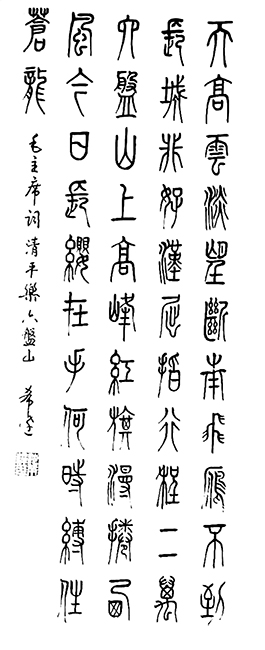 天高雲淡望斷南飛鴈不到
長城非好漢屈指行程二萬
六盤山上高峰紅旗漫捲西
風今日長纓在手何時縛住
蒼龍
毛主席詞清平樂六盤山